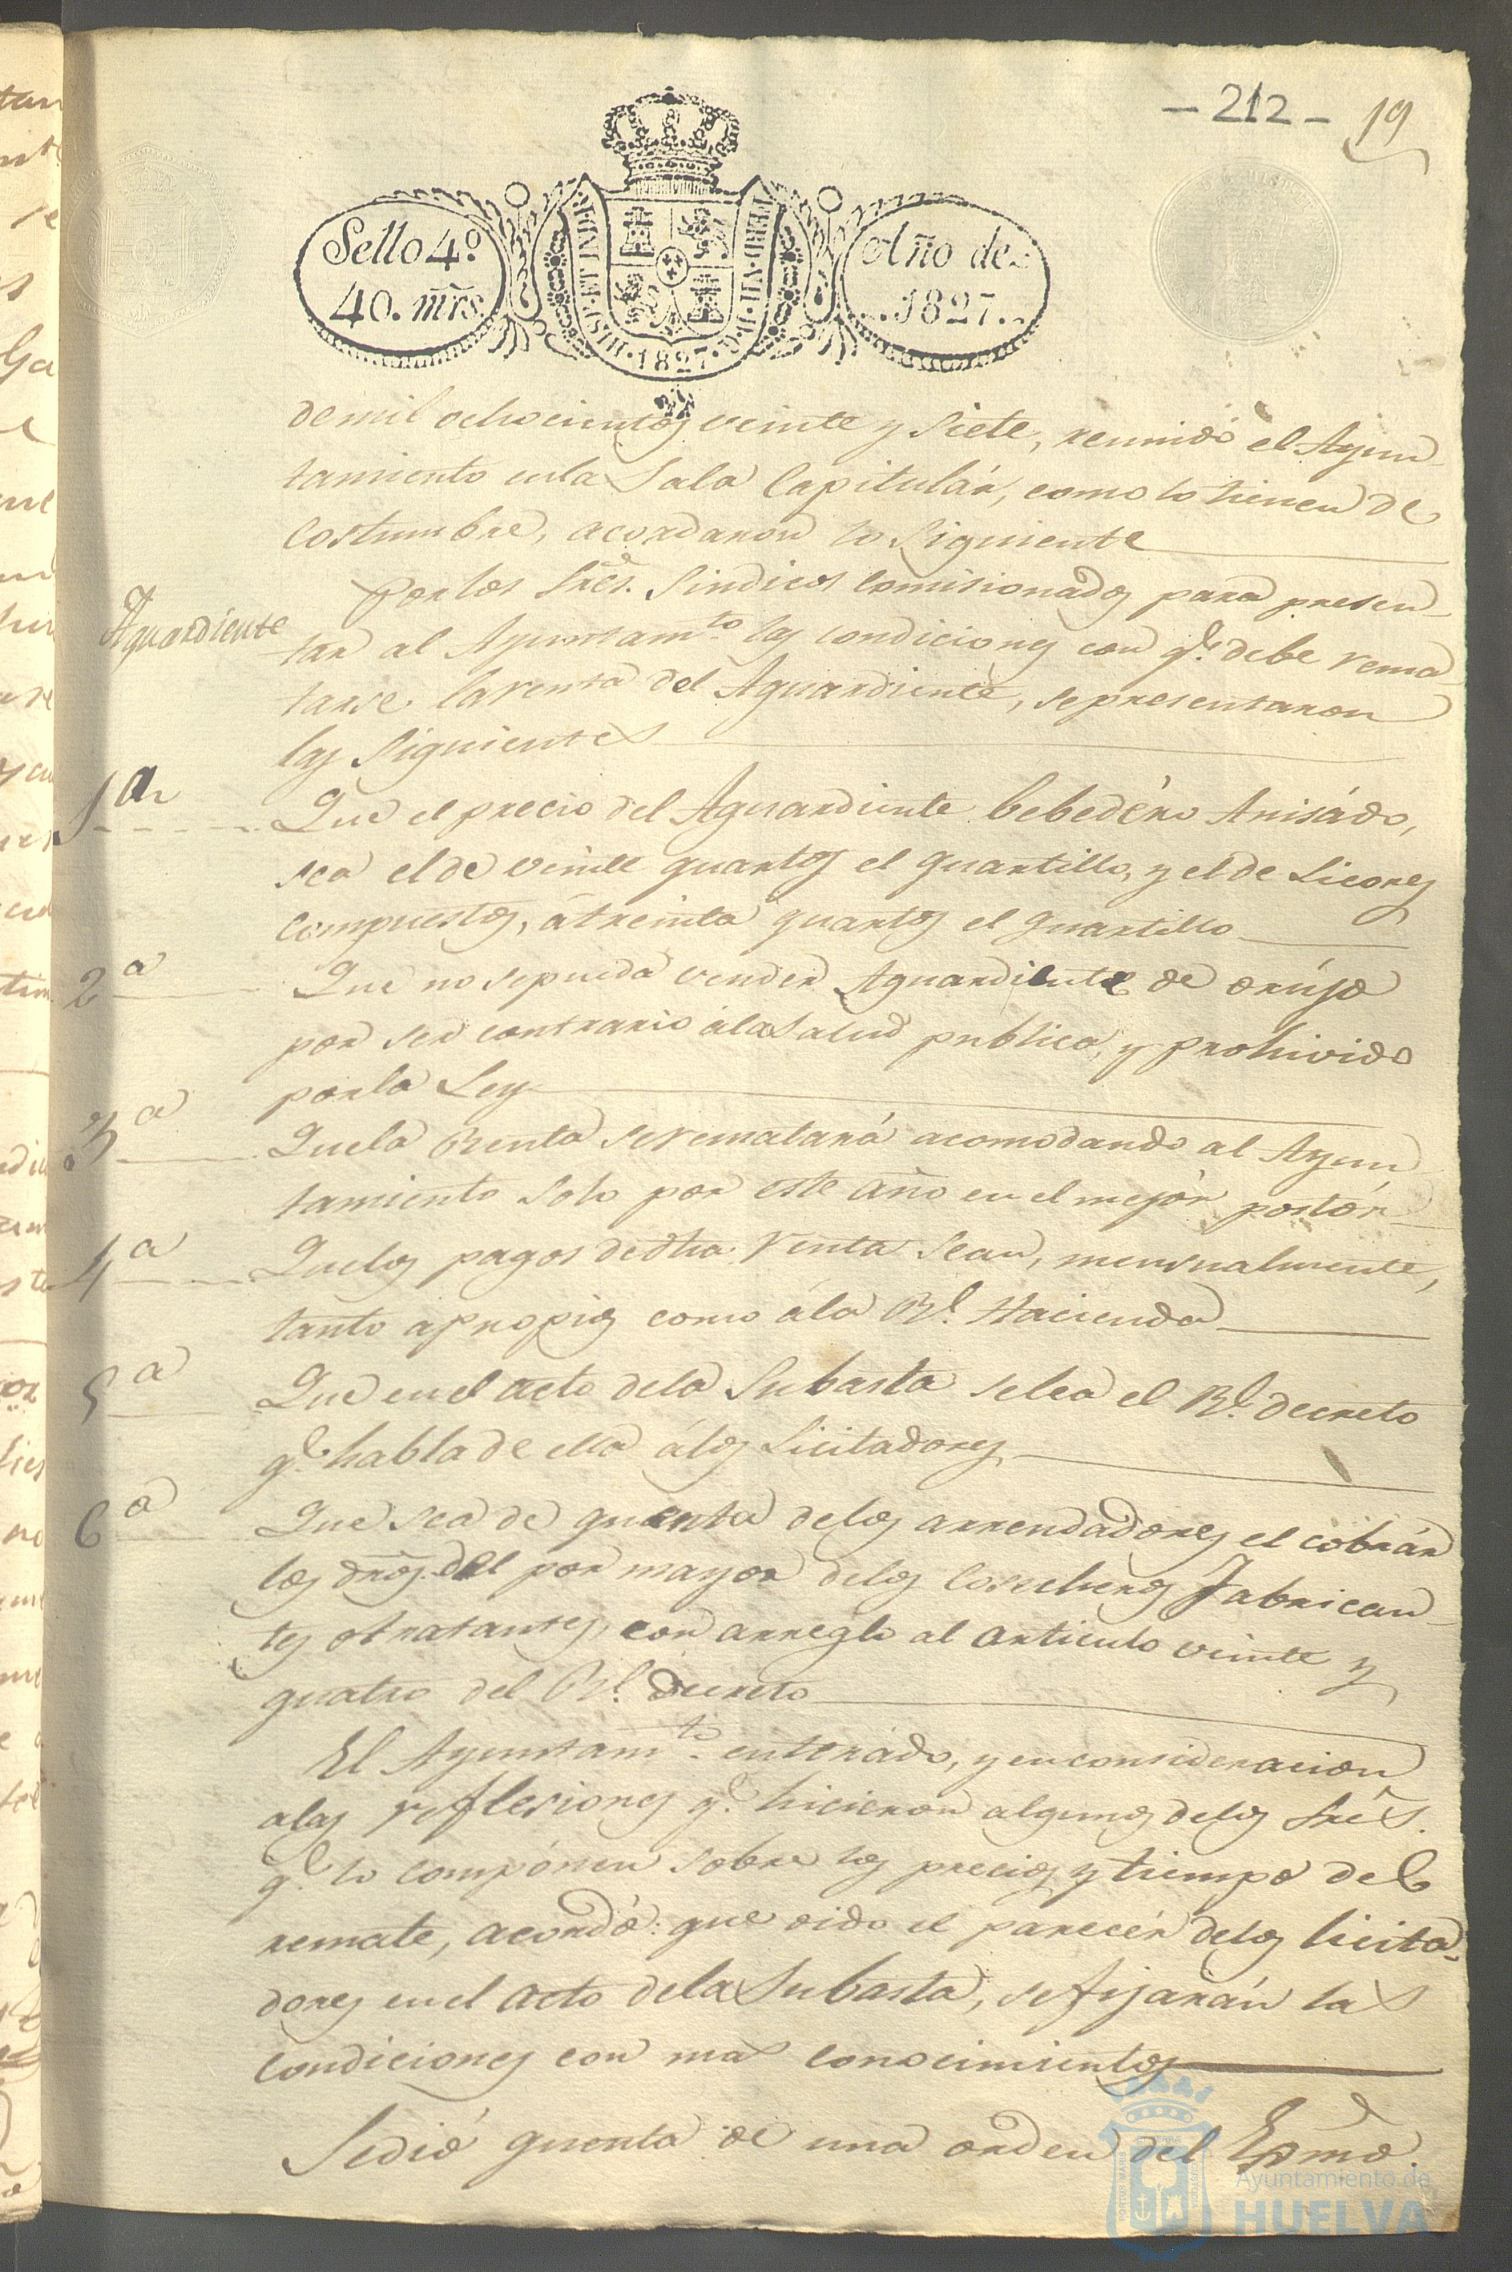 - 212 - 19
Sello 4º
40. mrs.
HISP. ET IND. R.
FERD. VII. D. G.
1827
Año de
1827.
de mil ochocientos veinte y siete, reunido el Ayun
tamiento en la Sala Capitulár, como lo tienen de
costumbre, acordaron lo siguiente
Aguardiente
Por los Sres. Sindicos comisionados para presen
tar al Ayuntamto. las condiciones con qe. debe rema
tarse la renta del Aguardiente, se presentaron
las siguientes
1a
Que el precio del Aguardiente bebedéro Anisádo,
sea el de veinte quartos el quartillo, y el de Licores
compuestos, á treinta quartos el quartillo
2a
Que no se pueda vender Aguardiente de orújo
por ser contrario á la salud publica, y prohivido
por la Ley
3a
Que la Renta se rematará acomodando al Ayun
tamiento solo por este año en el mejór postór
4a
Que los pagos de dha. renta sean, mensualmente,
tanto a propios como á la Rl. Hacienda
5a
Que en el acto de la Subasta se lea el Rl. decreto
qe. habla de ella á los Licitadores
6a
Que sea de quenta de los arrendadores el cobrár
los dros. del por mayor de los cosecheros Fabrican
tes o tratantes, con arreglo al articulo veinte y
quatro del Rl. decreto
El Ayuntamto. enterádo, y en consideracion
a las reflesiones qe. hicieron algunos de los Sres.
qe. lo compónen sobre los precios y tiempo del
remate, acordó: que oido el parecér de los licita-
dores en el acto de la Subasta, se fijarán las
condiciones con mas conocimientos
Se dió quenta de una orden del Exmo.
Ayuntamiento de
HUELVA